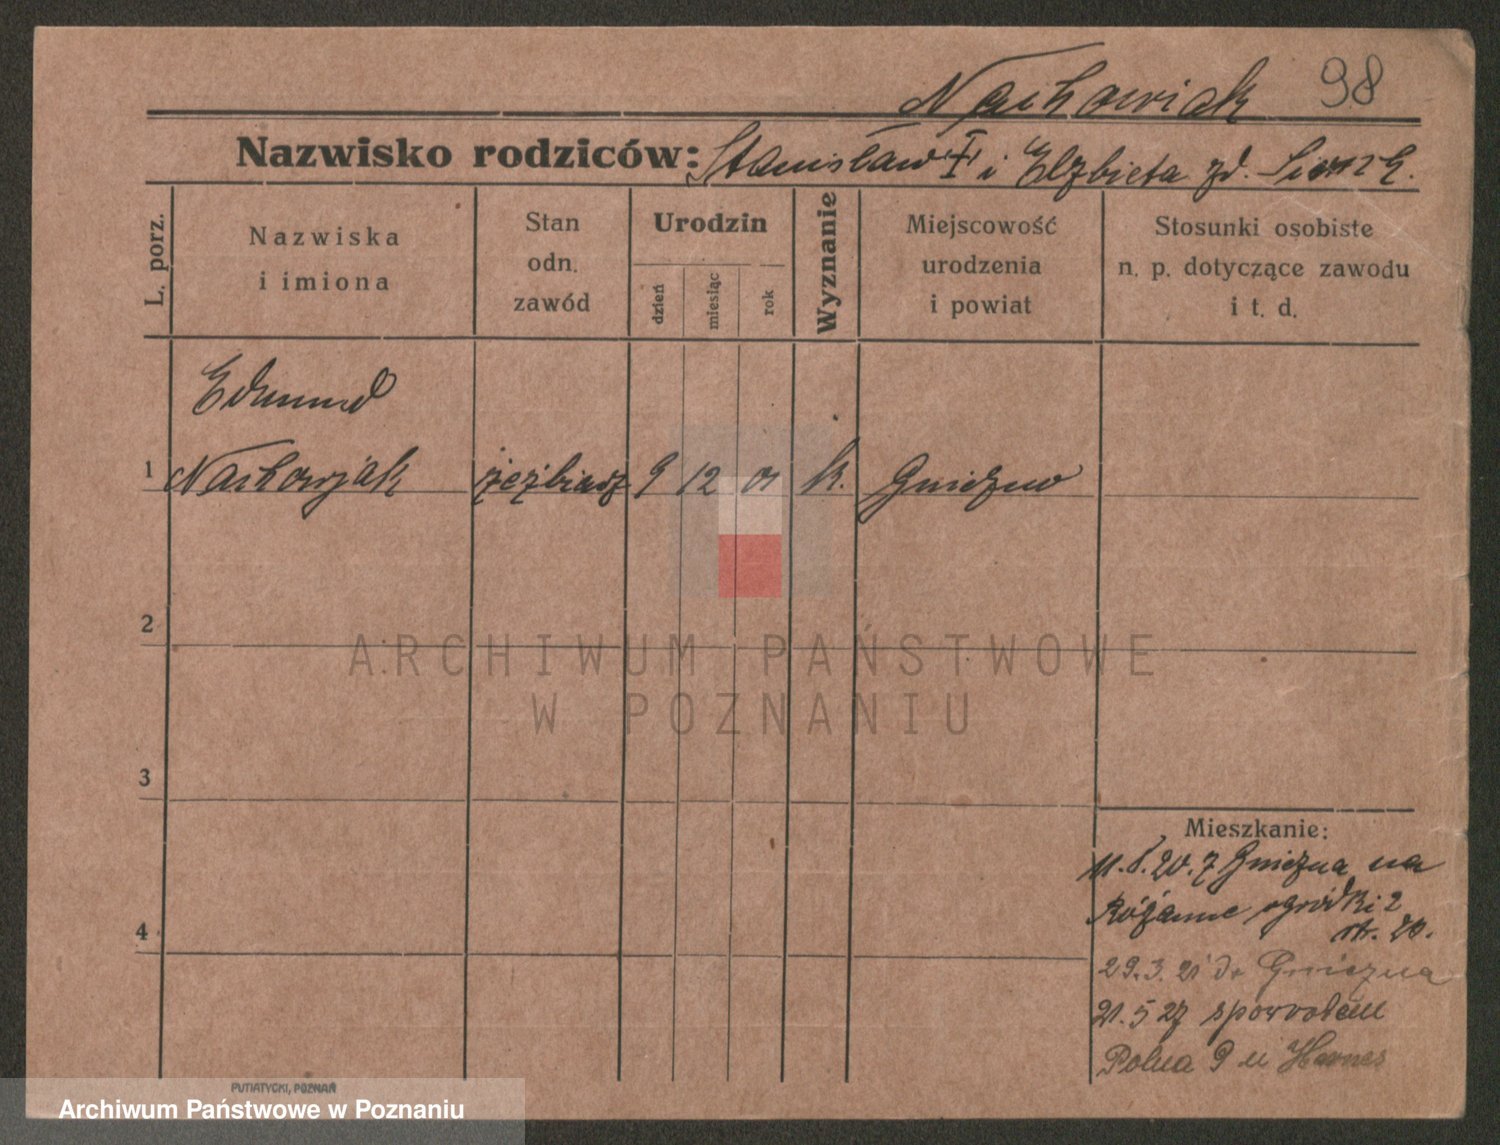 Nachowiak 98
Nazwisko rodziców: Stanisław "I" i Elżbieta zd.
L. porz.
Nazwiska
i imiona
Stan
odn.
zawód
Urodzin
dzień
miesiąc
rok
Wyznanie
Miejscowość
urodzenia
i powiat
Stosunki osobiste
n. p. dotyczące zawodu
i t. d.
Edmund
1 Nachowjak rzeźbiarz 9 12 01 k. Gniezno
2
3
4
Mieszkanie:
11.8.20. z Gniezna na
Różanne ogródki 2
29.3.21 do Gniezna
21.5 27 spowrotem
Polna 9 u
PUTIATYCKI, POZNAŃ
ARCHIWUM PAŃSTWOWE
W POZNANIU
Archiwum Państwowe w Poznaniu